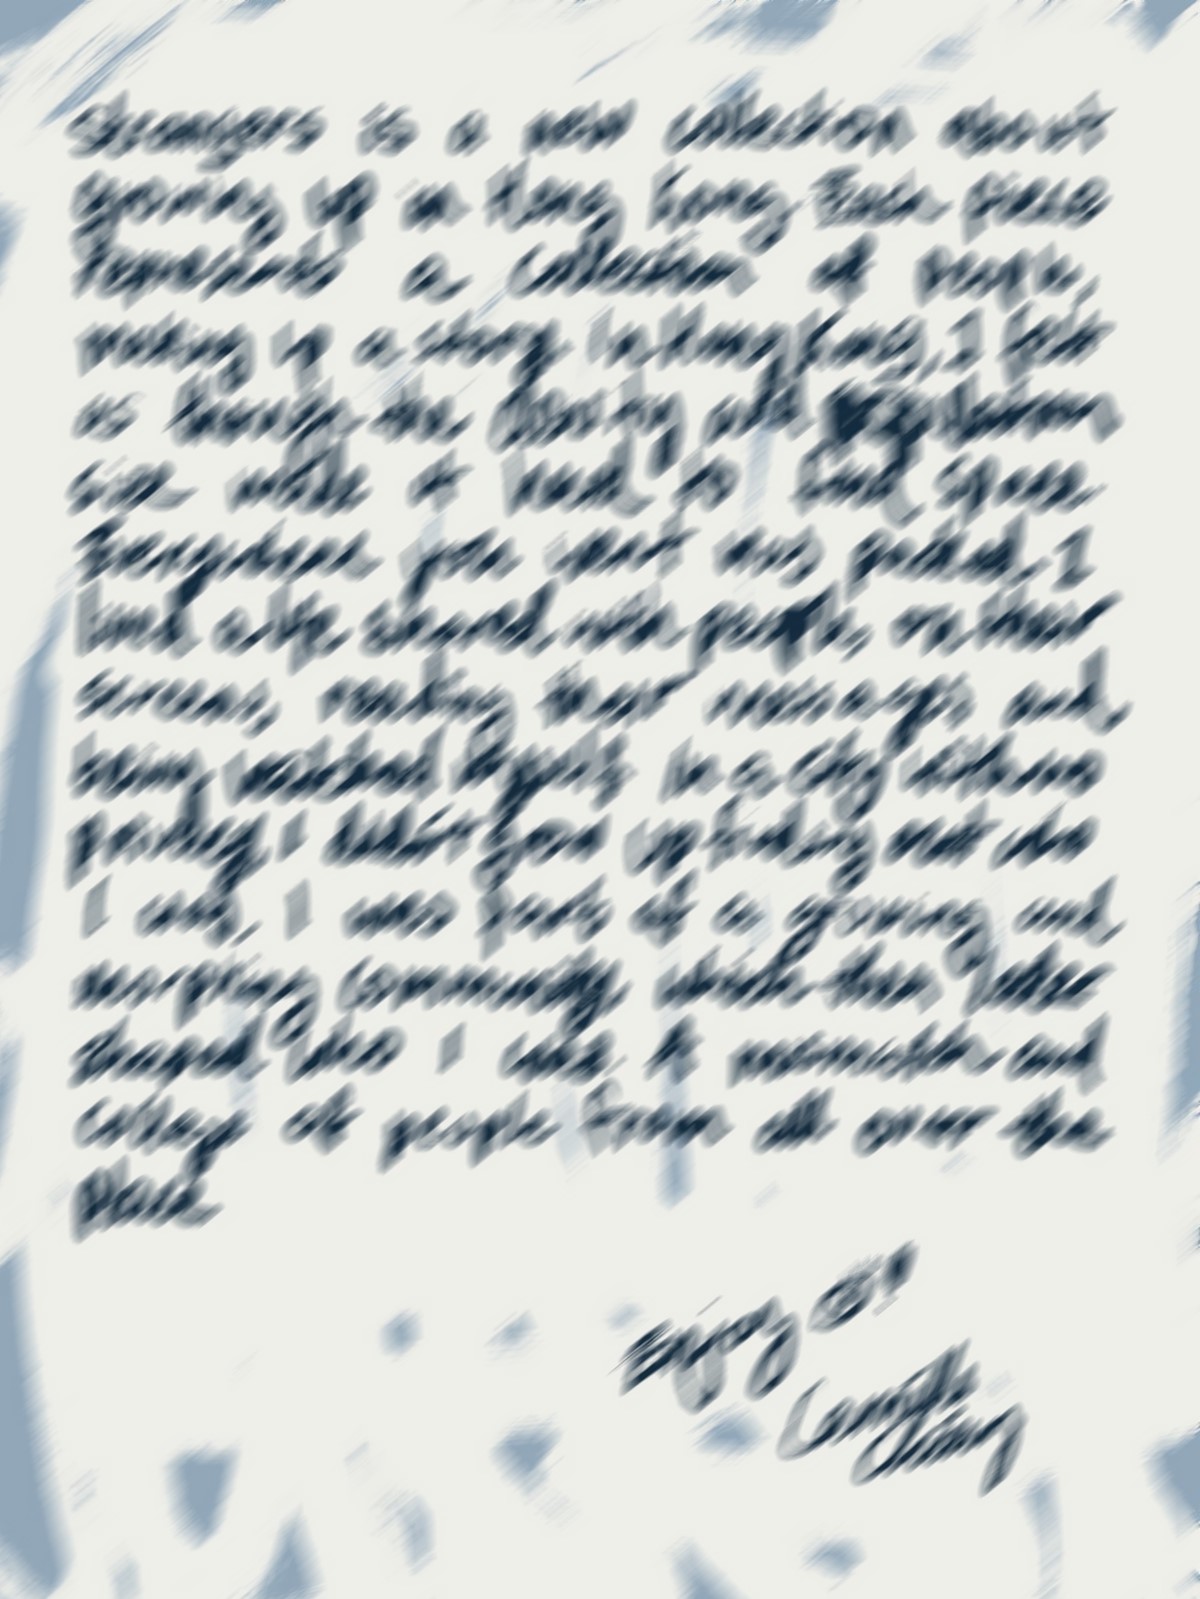 Strangers is a new collection about
growing up in Hong Kong. Each piece
represents a collection of people,
making up a story. In Hong Kong, I felt
as though the density and
size made it hard to find space.
Everywhere you went was packed. I
lived a life shared with people, on their
screens, reading their messages and
being watched. In a city without
privacy, I didn't grow up finding out who
I was, I was part of a growing and
morphing community which then later
shaped who I was. A and
collage of people from all over the
place.
Enjoy